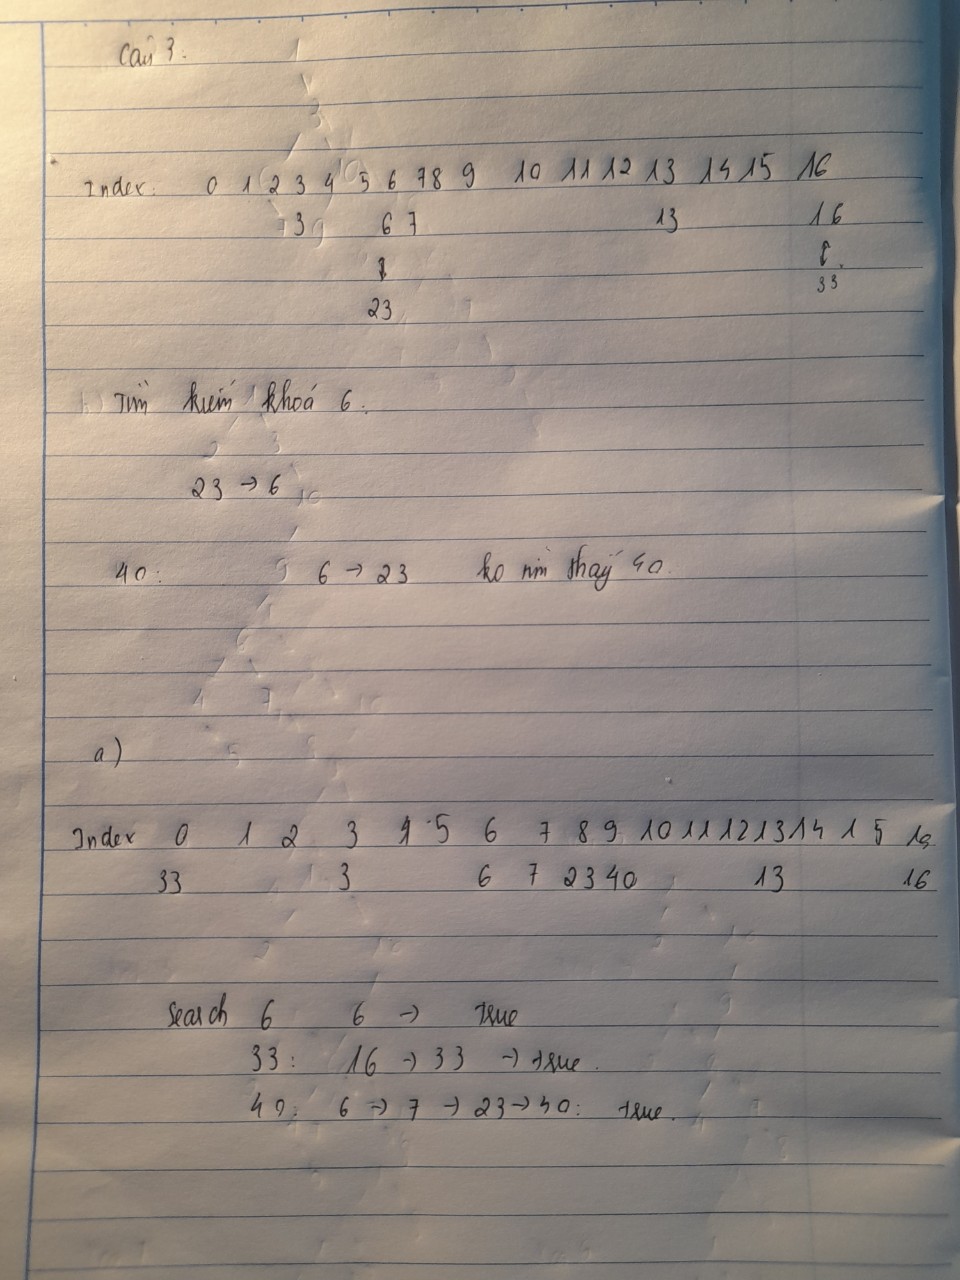 Câu 3:
Index: 0 1 2 3 4 5 6 7 8 9 10 11 12 13 14 15 16
3 6 7 13 16
33
23
Tìm kiếm khoá 6.
23 → 6
40: 6 → 23 ko tìm thấy 40.
a)
Index 0 1 2 3 4 5 6 7 8 9 10 11 12 13 14 1 5 16
33 3 6 7 23 40 13 16
Search 6 6 → true
33: 16 → 33 → true.
40: 6 → 7 → 23 → 40: true.